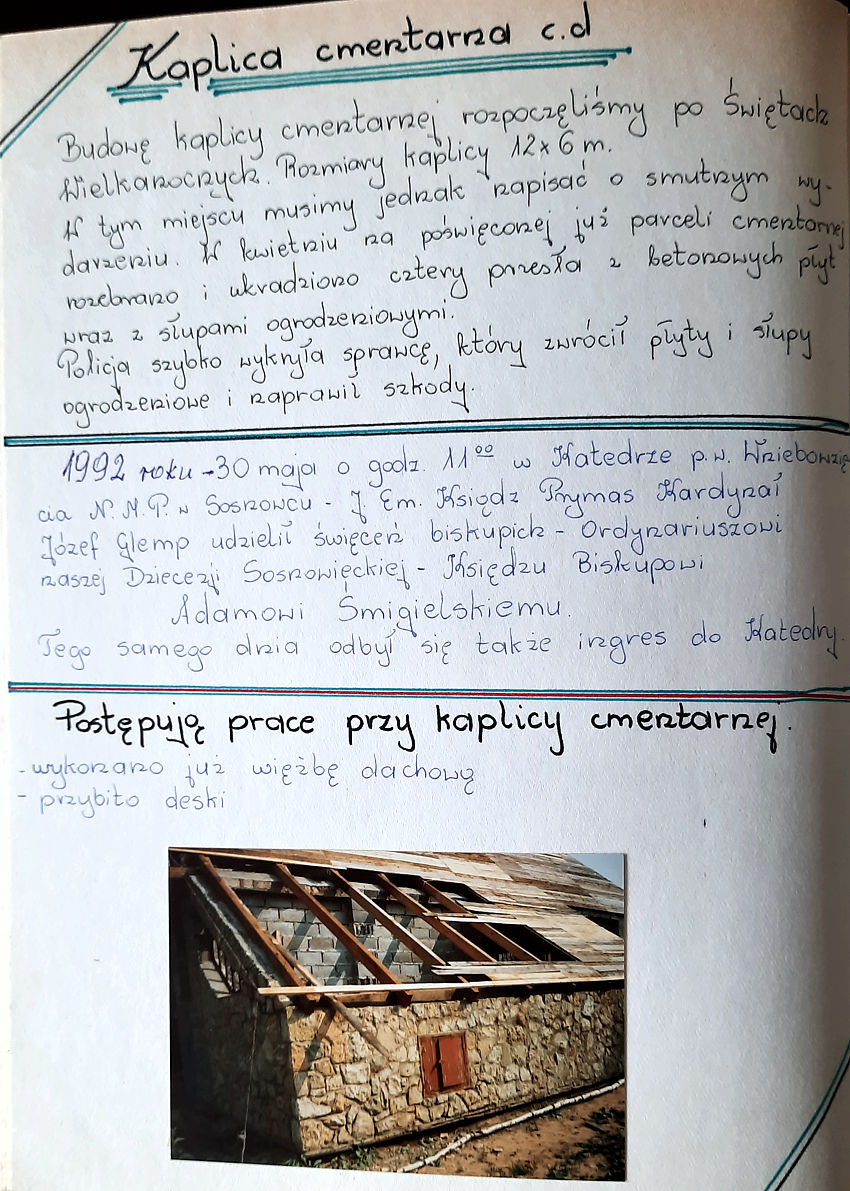 Kaplica cmentarna c.d
Budowę kaplicy cmentarnej rozpoczęliśmy po Świętach
Wielkanocnych. Rozmiary kaplicy 12 x 6 m.
W tym miejscu musimy jednak zapisać o smutnym wy-
darzeniu. W kwietniu na poświęconej już parceli cmentarnej
rozebrano i ukradziono cztery przęsła z betonowych płyt
wraz z słupami ogrodzeniowymi.
Policja szybko wykryła sprawcę, który zwrócił płyty i słupy
ogrodzeniowe i naprawił szkody.
1992 roku - 30 maja o godz. 11⁰⁰ w Katedrze p.w. Wniebowzię
cia N.M.P. w Sosnowcu - J. Em. Ksiądz Prymas Kardynał
Józef Glemp udzielił święceń biskupich - Ordynariuszowi
naszej Diecezji Sosnowieckiej - Księdzu Biskupowi
Adamowi Śmigielskiemu.
Tego samego dnia odbył się także ingres do Katedry.
Postępują prace przy kaplicy cmentarnej.
- wykonano już więźbę dachową
- przybito deski